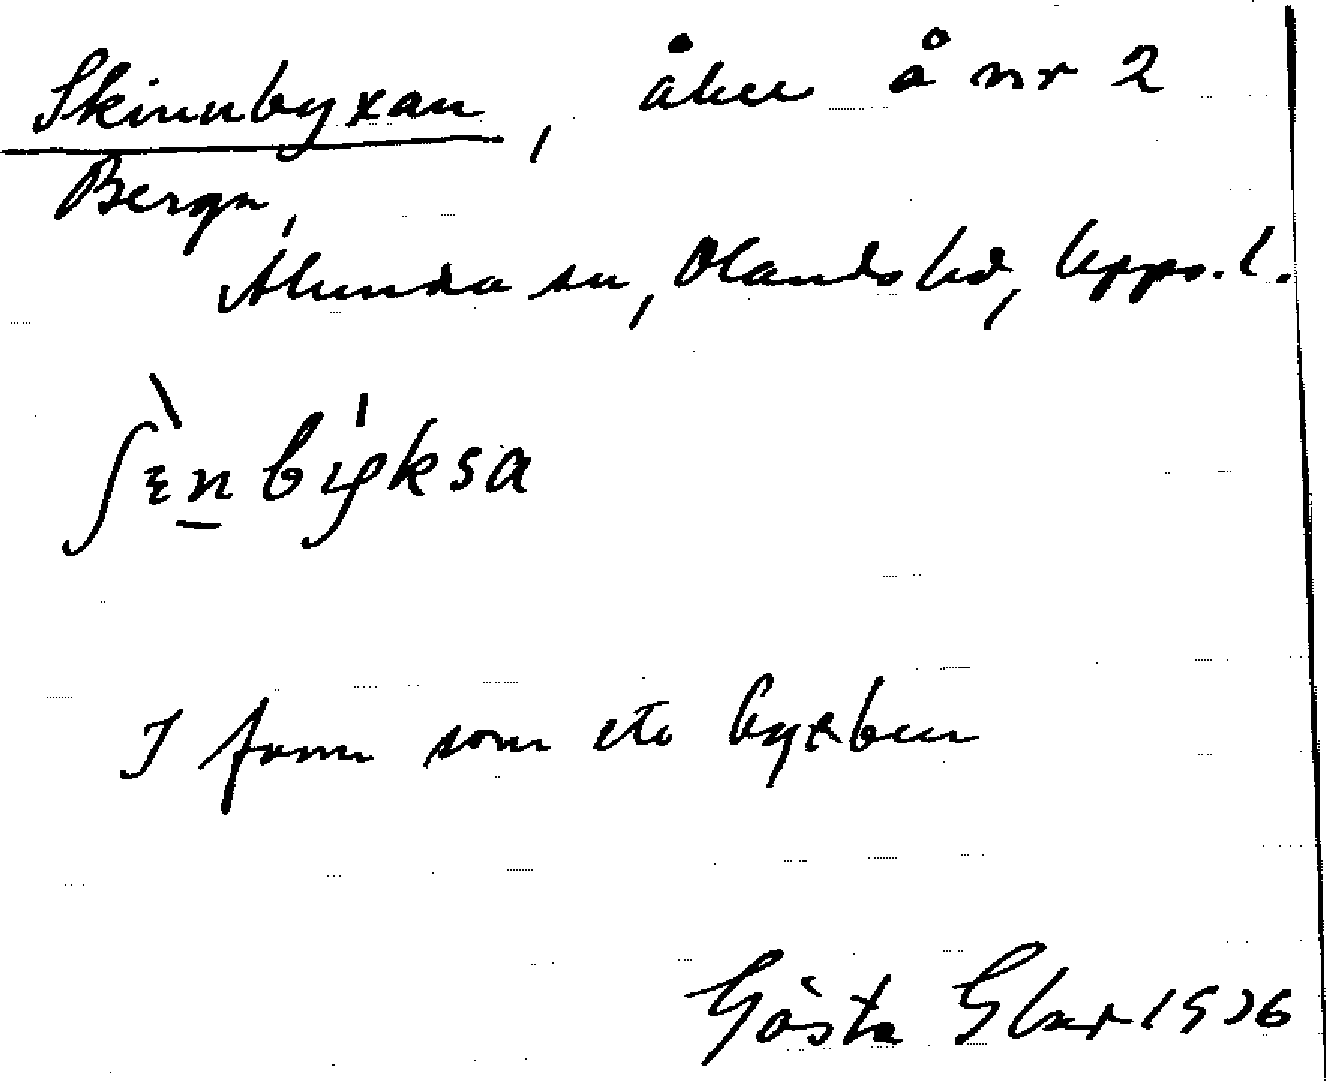 Skinnbyxan, åker å nr 2
Bergn,
Alunda sn, Olands hd, Upps. l.
ʃɛ̀n býksa
I form som ett byxben
Gösta